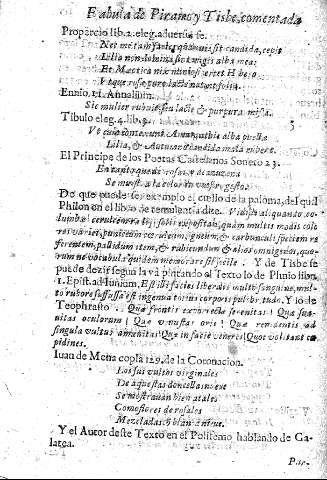 Fabula de Piramo, y Tisbe, comentada
Propercio lib. 2. eleg. aduersus se.
Nec me tam facies, quamuis sit candida, cepit
Lilia non domina sint magis alba mea:
Et Mæotica nix minio si certet Hibero
Vtque rosæ puro lacte natant folia.
Ennio. 11. Annalium.
Sic mulier rubuit, ceu lacte & purpura mista.
Tibulo eleg. 4. lib. 3.
Lilia, & Autumno candida mala rubent.
El Principe de los Poetas Castellanos Soneto 23.
En tanto que de rosa, y açuzena
Se muestra la color en vuestro gesto.
De que puede ser exemplo el cuello de la paloma, del qual
Philon en el libro de temulentia dize. Vidisti aliquando, co-
lumbæ ceruicem radijs solis expositā, quam multis modis colo
res variet, puniceum & cæruleum, & carbunculi speciem re
ferentem, pallidum item, & rubicundum & alios omnigenos, quo-
rum ne vocabula quidem memorare est facile. Y de Tisbe se
puede dezir segun la và pintando el Texto lo de Plinio libro
1. Epist. ad Iunium, Est illi facies liberalis multo sanguine, mul-
to rubore suffussa est ingenua totius corporis pulchritudo. Y lo de
Teophrasto. Quæ frontis exporrectæ serenitas! Quæ sua-
uitas oculorum! Quæ venustas oris! Quæ ren dentis ad
singula vultus amœnitas! Quæ in facie veneres! Quot volitant cu
pidines.
Iuan de Mena copla 129. de la Coronacion.
Los sus vultos virginales
De aquestas donzellas nueue
Se mostrauan bien atales
Como flores de rosales
Mezcladas cō blanca nieue.
Y el Autor deste Texto en el Polifemo hablando de Ga-
latea.
Pur-